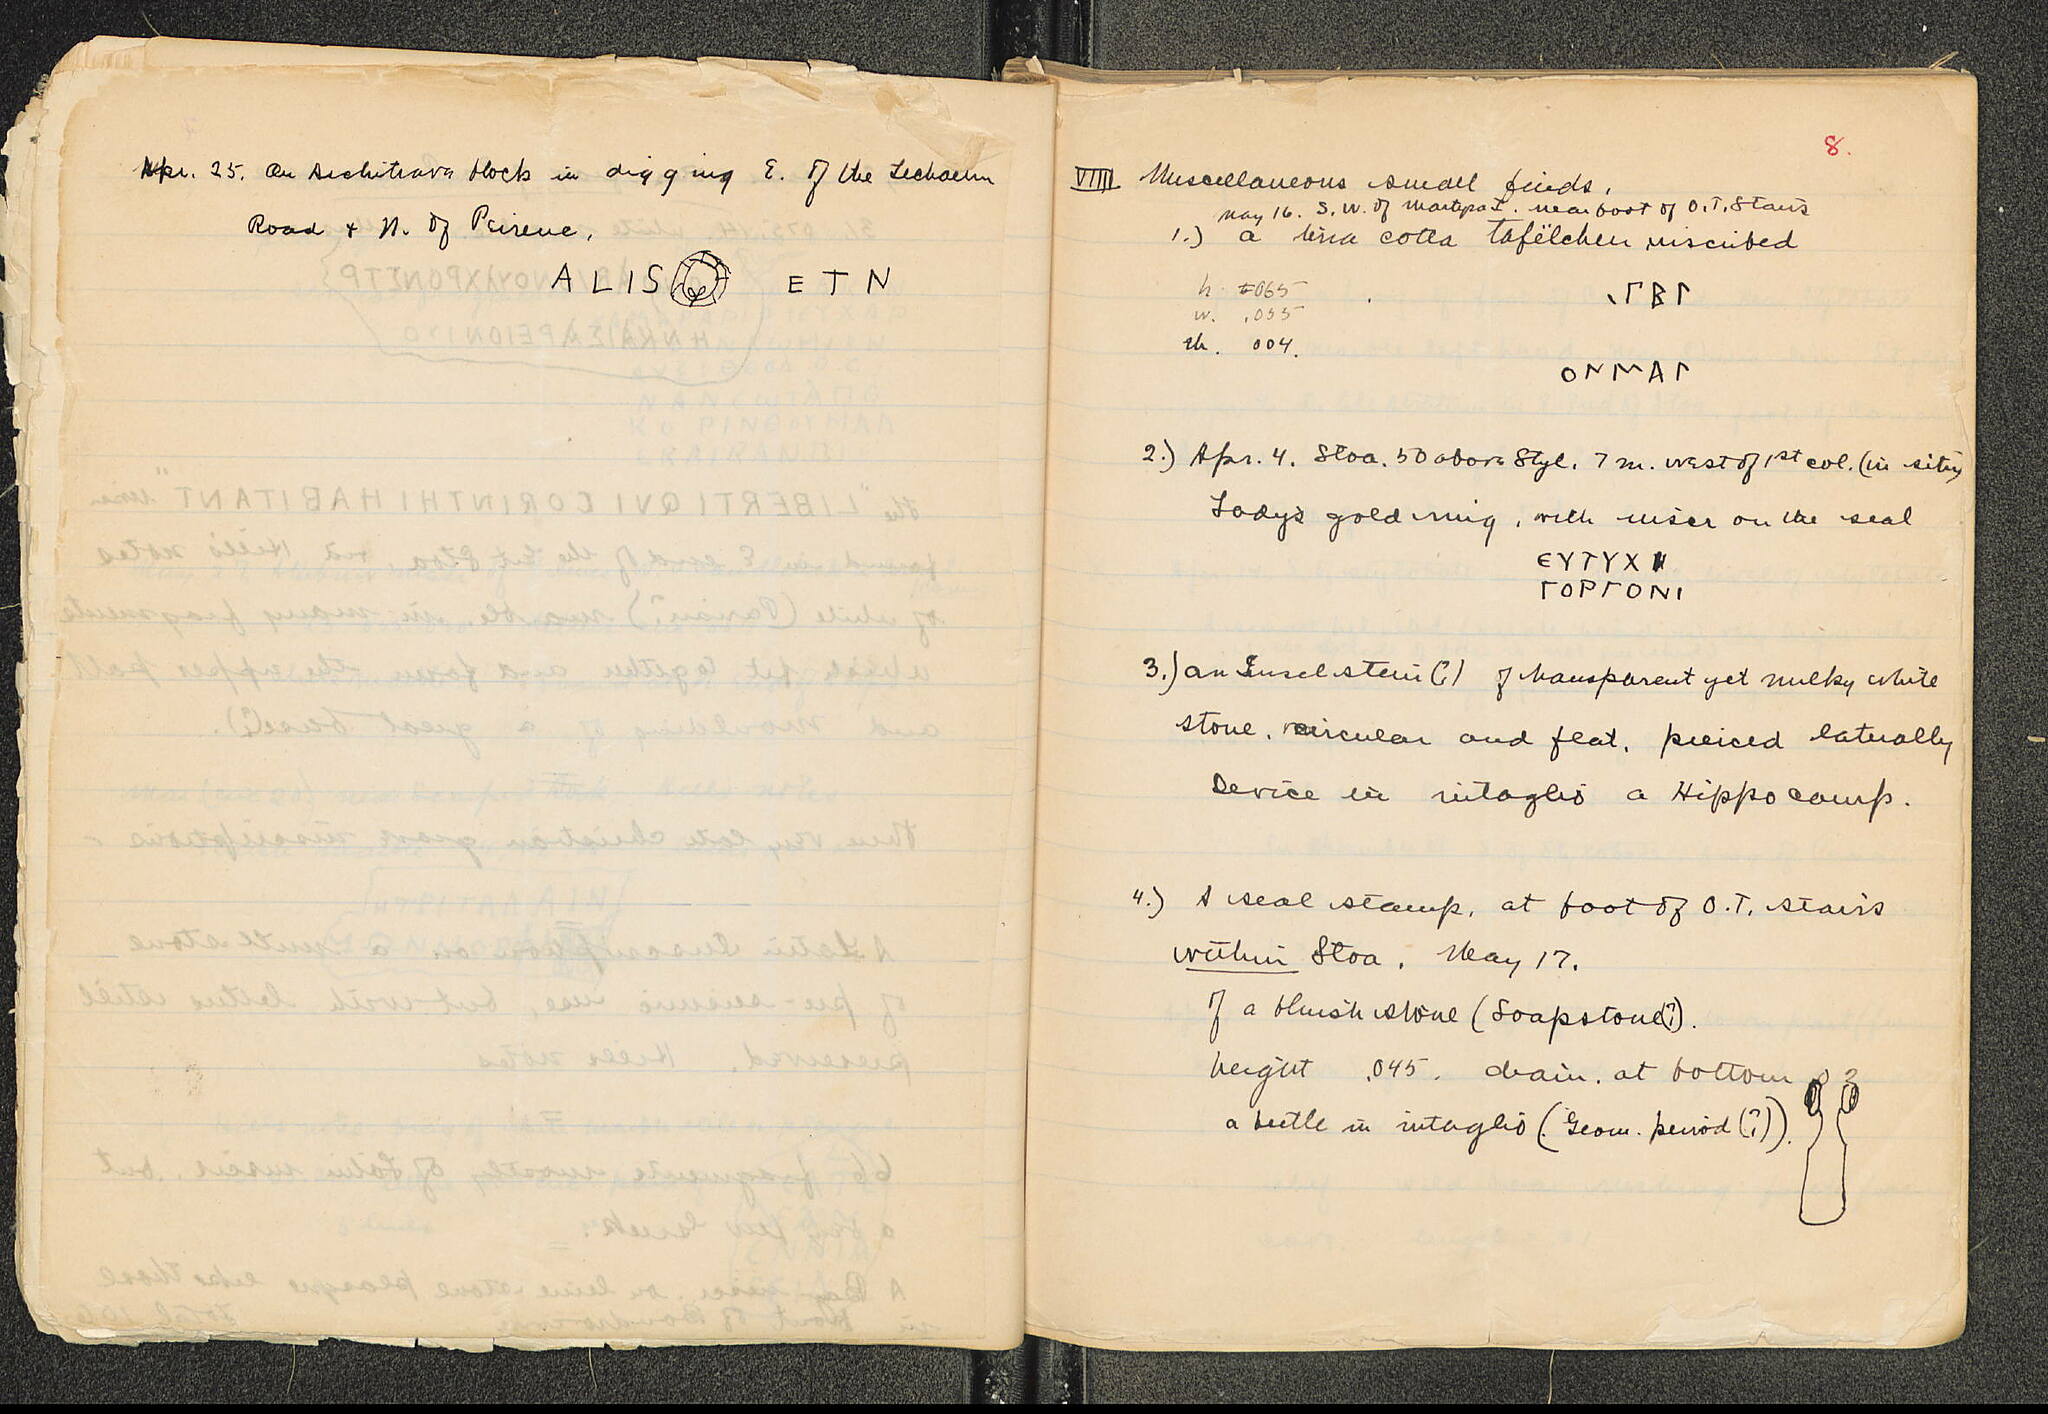 Apr. 25. An Architrave block in digging E. of the Lechaeum
Road + N. of Peirene.
ALIS ETN
8.
VIIII Miscellaneous small finds.
May 16. S.W. of near foot of O.T. Stairs
1.) a terra cotta täfelchen inscribed
h. .065
w. .055
th. .004.
ΓΒΓ
2.) Apr. 4. Stoa. 50 above Styl. 7 m. west of 1st col. (in situ)
Lady's gold ring, with inscr on the seal
ЄΥΤΥΧΙ
ΓΟΡΓΟΝΙ
3.) an Inselstein (?) of transparent yet milky white
stone, circular and flat, peirced laterally
Device in intaglio a Hippocamp.
4.) A seal stamp, at foot of O.T. stairs
within Stoa. May 17.
of a bluish stone (Soapstone(?)).
height .045. diam. at bottom
a beetle in intaglio (Geom. period (?)).